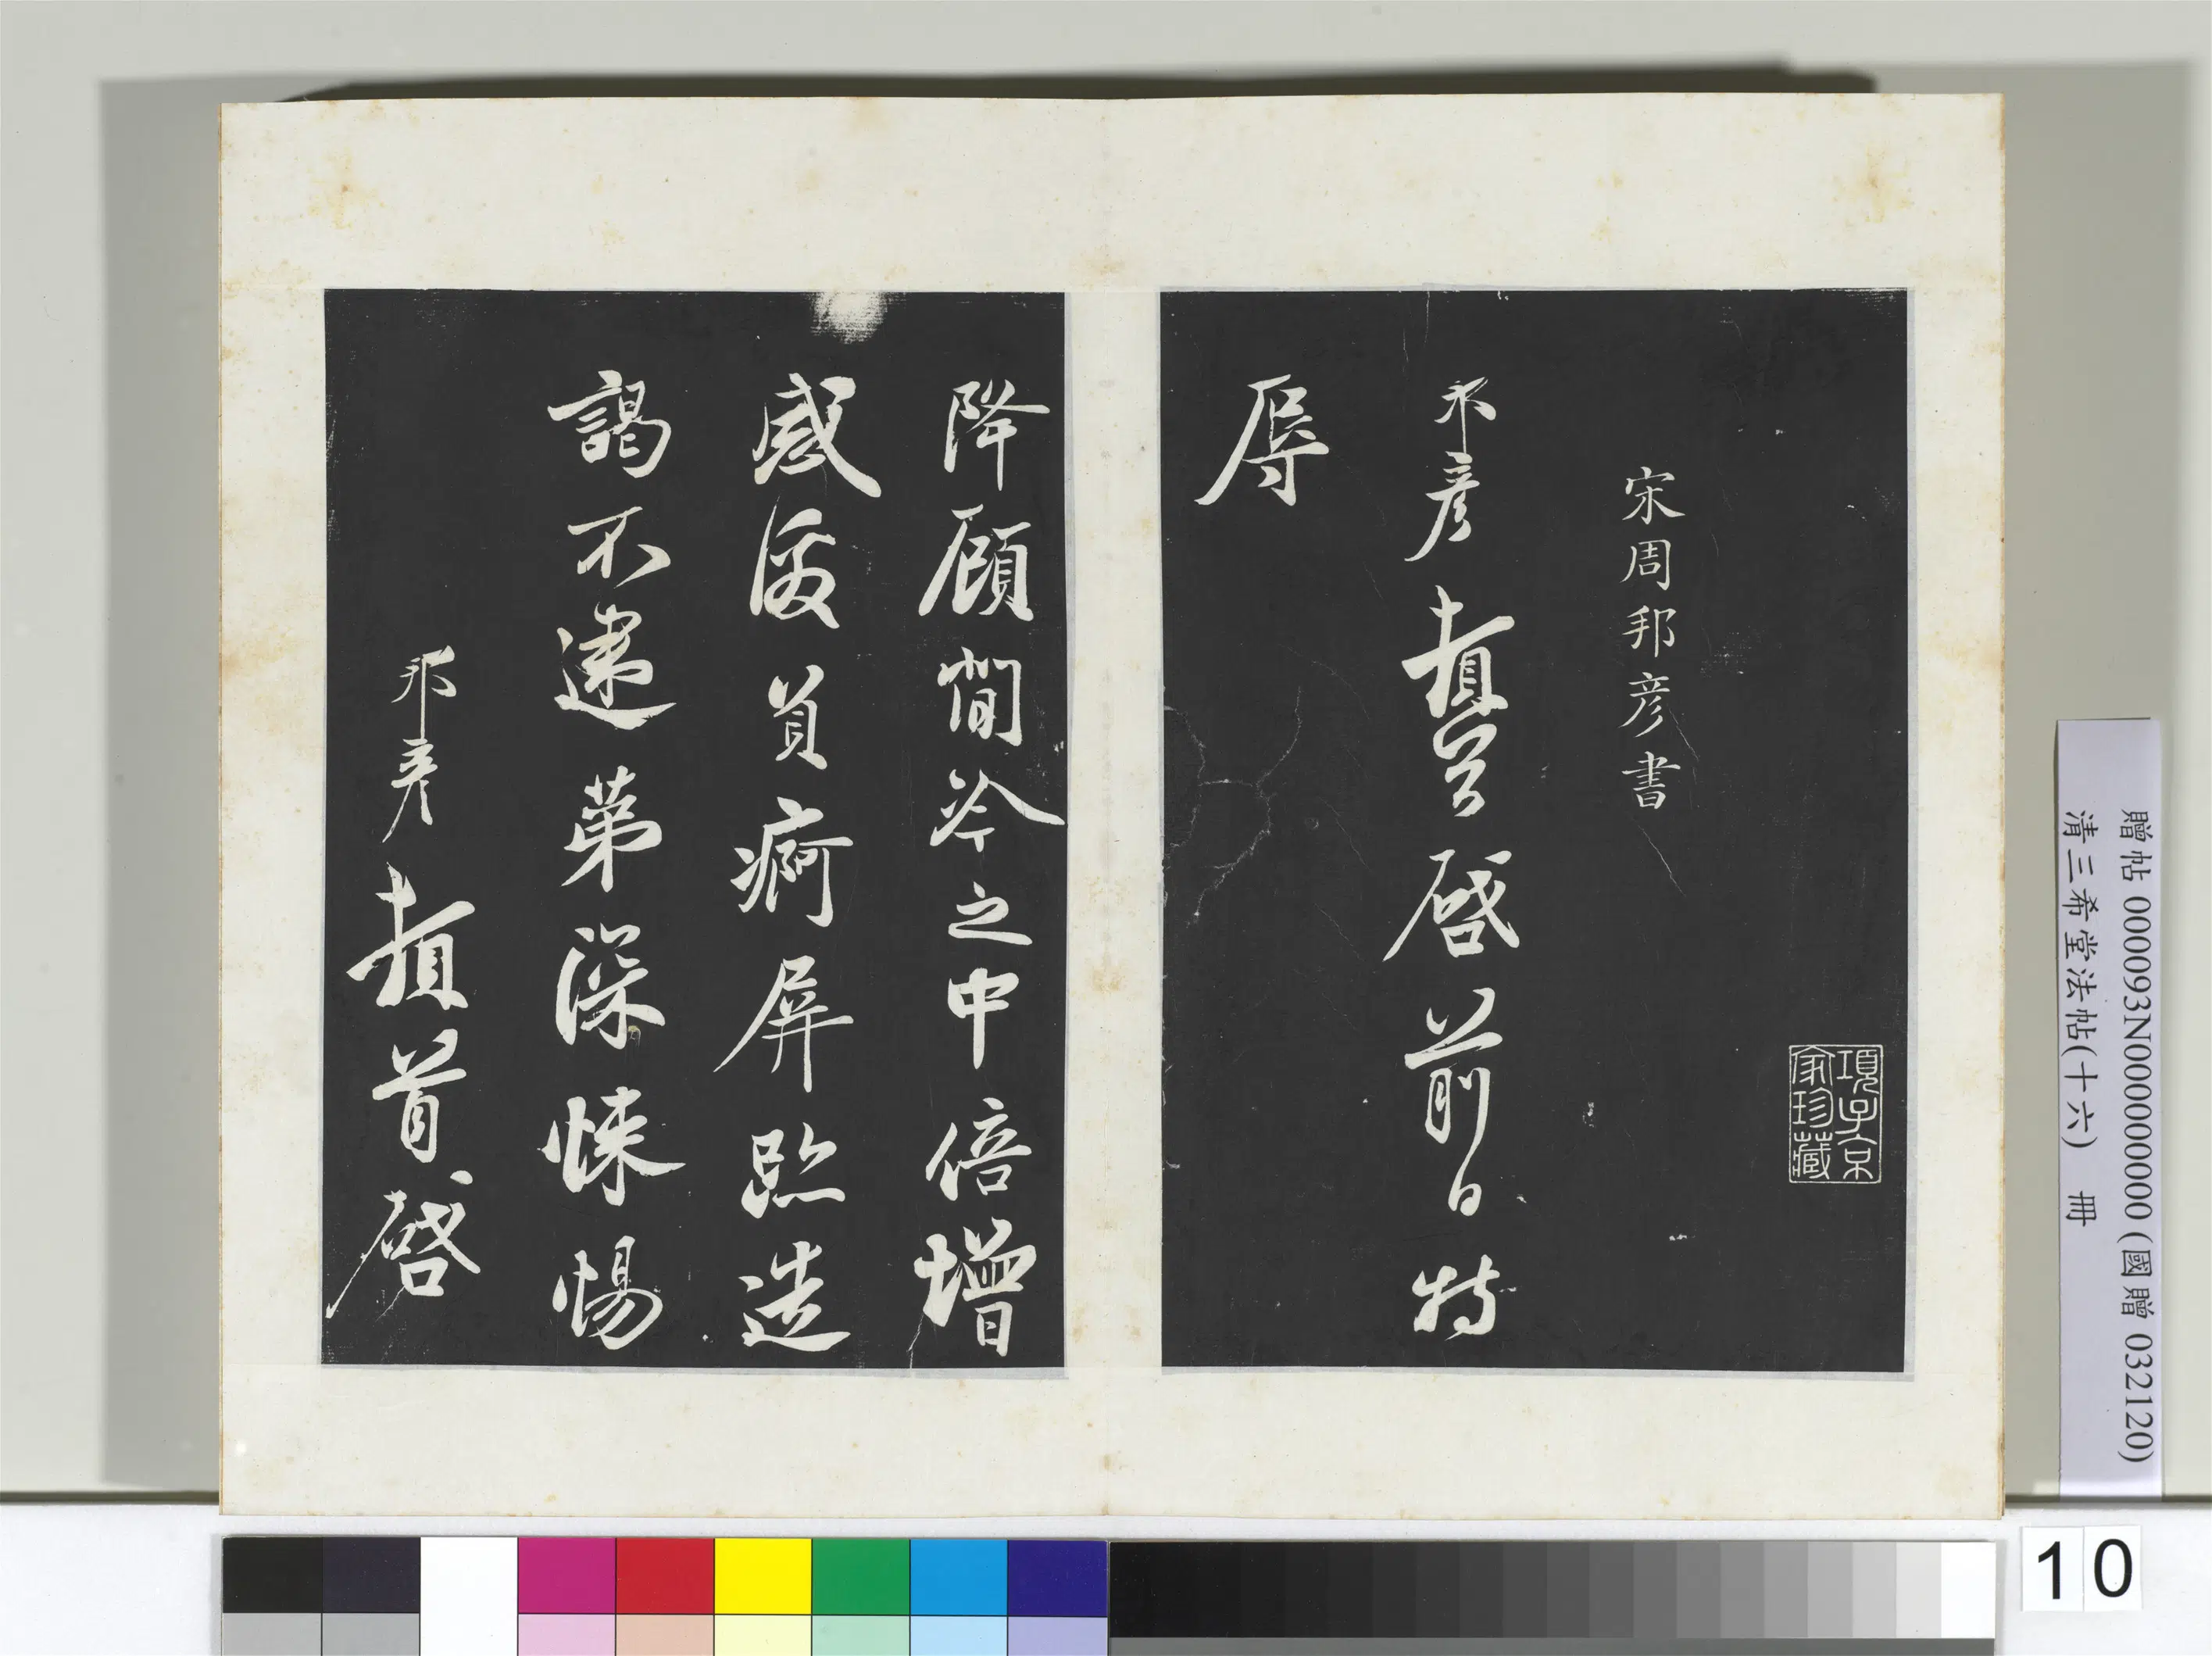 宋周邦彦書
項子京
家珍藏
邦彦頓首啓前日特
辱
降顧閒冷之中倍增
感 負痾屏跡造
謁不逮第深悚惕
邦彦頓首啓
贈帖 000093N000000000 (國贈 032120)
清三希堂法帖(十六) 冊
10